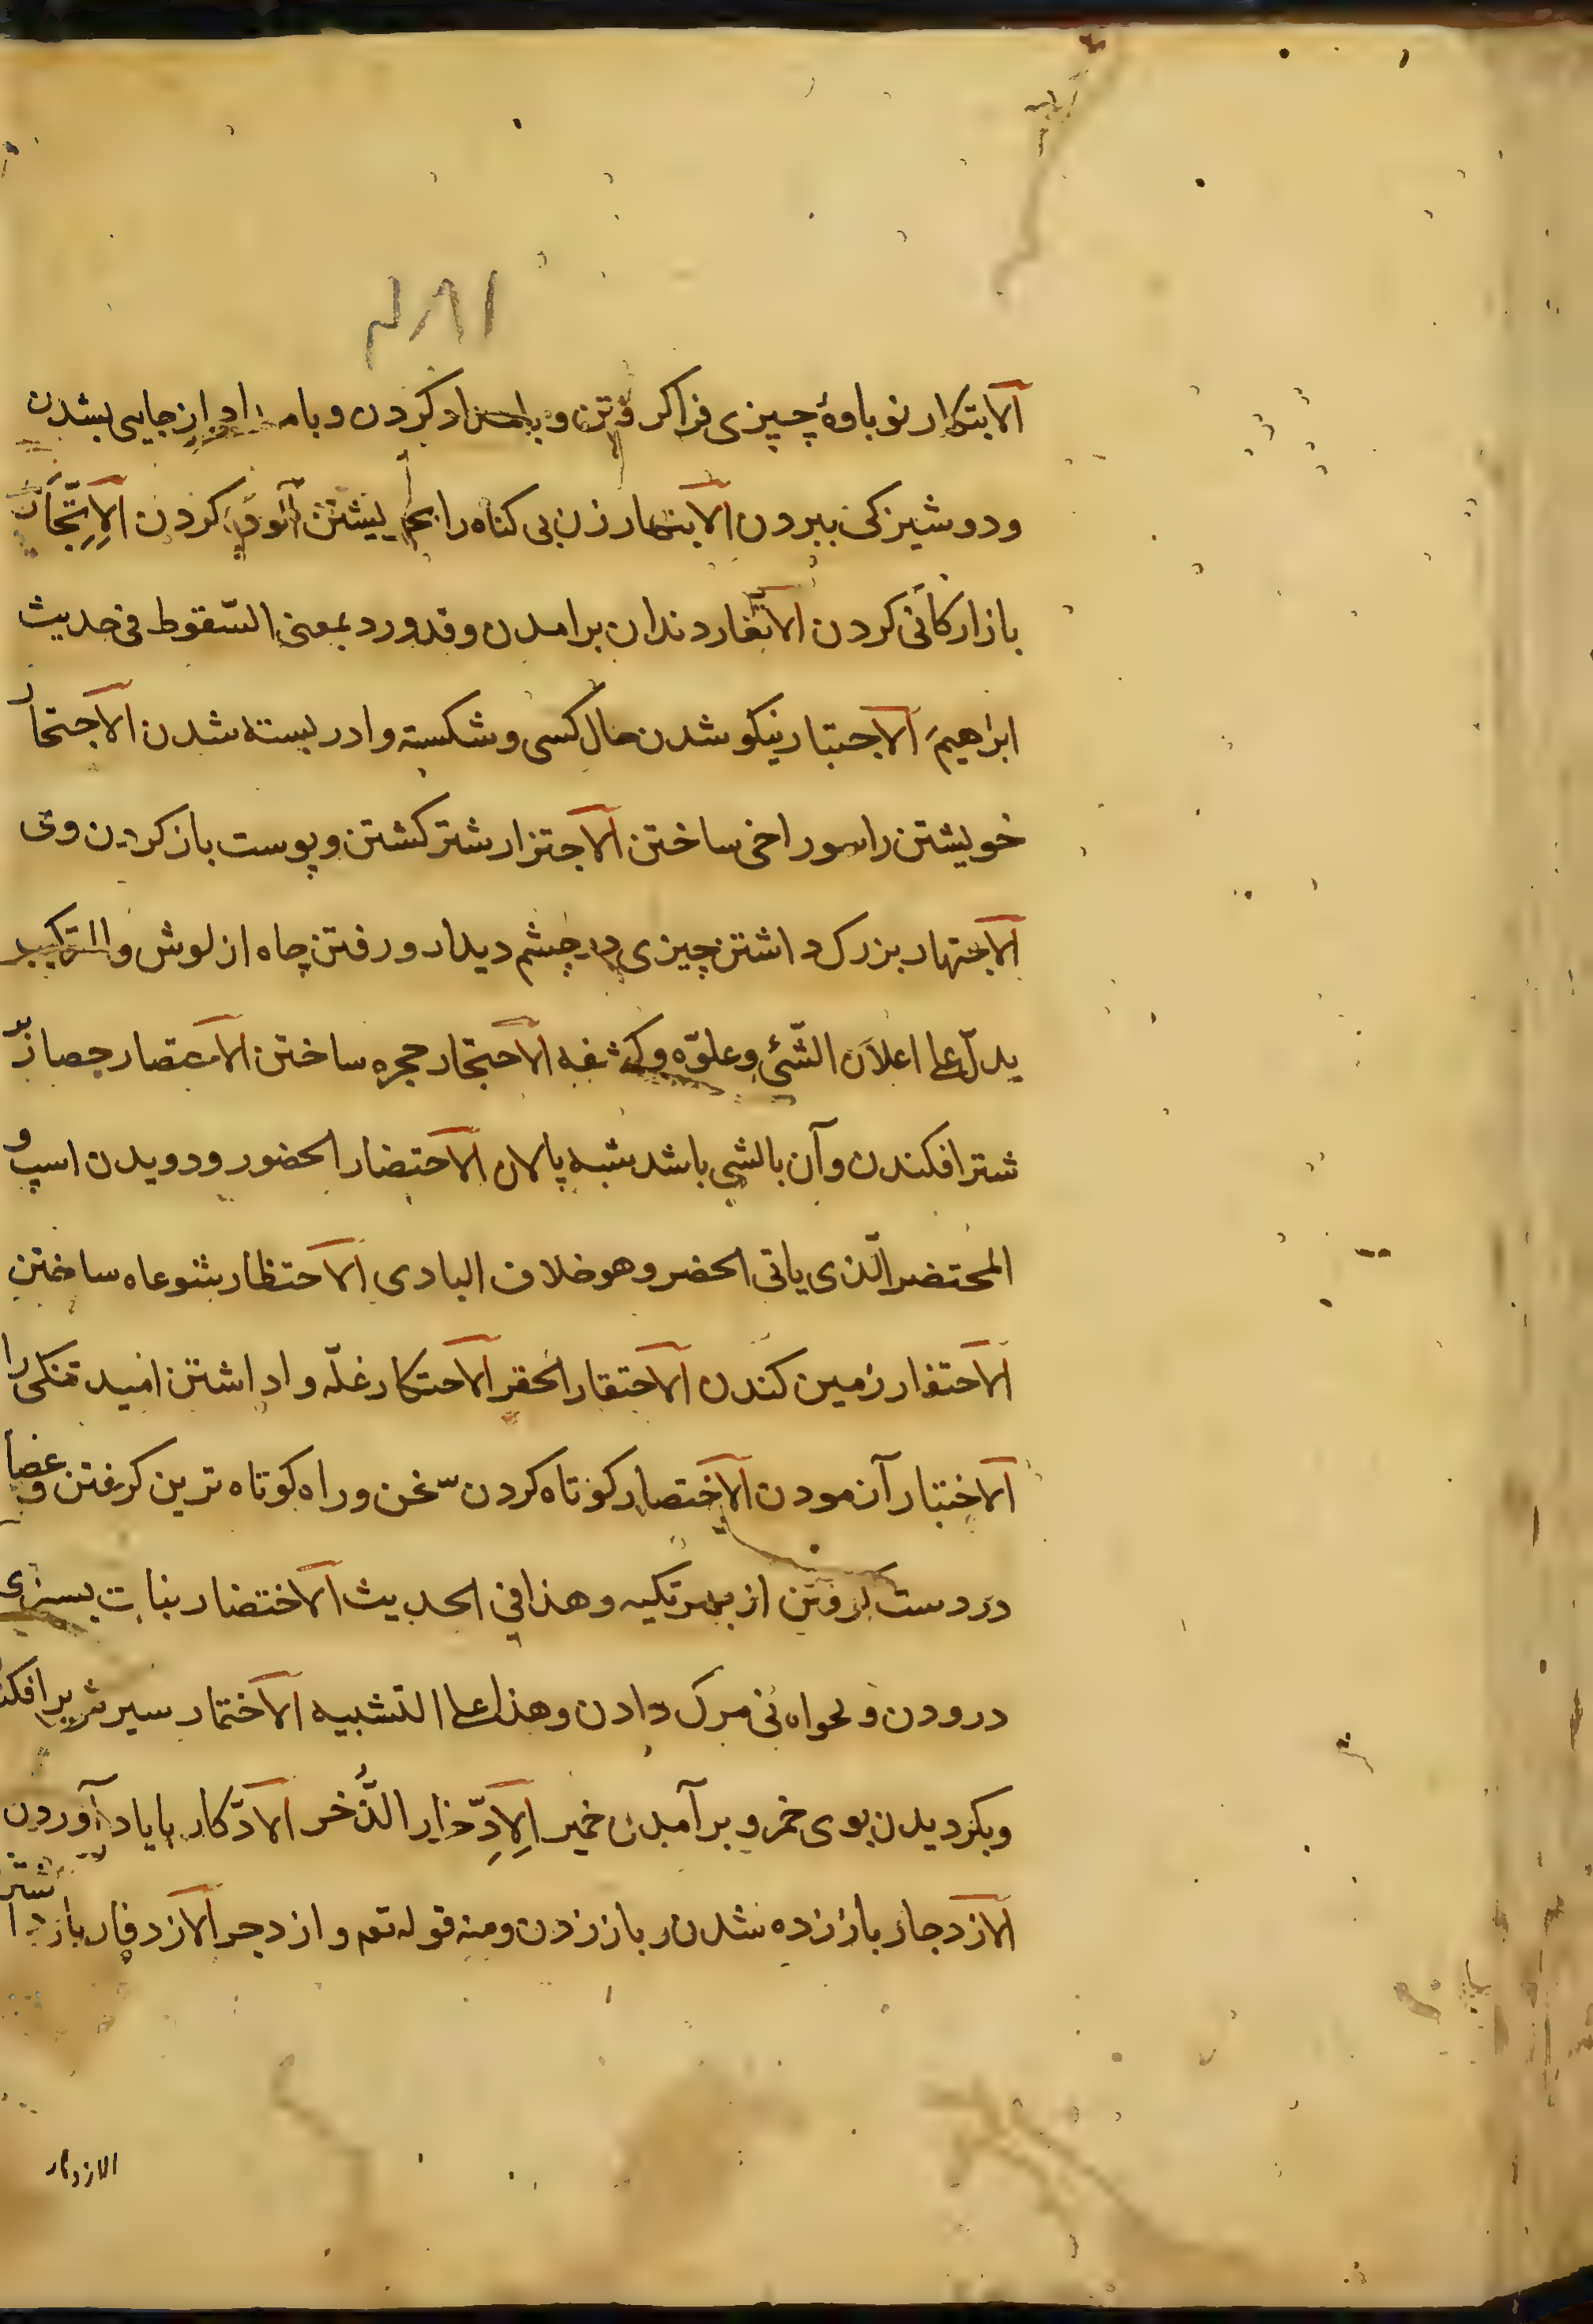 الابتکار نوباوهٔ چیزی فراکرفتن و بامداد کردن و بامداد از جایی بشدن
ودوشیزکی ببردن الابتهار زن بی کناه را بخویشتن آلوده کردن الاِتِّجَار
بازارکانی کردن الاتّغار دندان برامدن وقد ورد بمعنی السّقوط فی حدیث
ابرٰاهیمَ الاجتبار نیکو شدن حال کسی وشکسته وادر بسته شدن الاجتحار
خویشتن را سوراخی ساختن الاجتزار شتر کشتن وپوست باز کردن وی
الاجتهار بزرک داشتن چیزی در چشم دیدار ورفتن چاه از لوش والترکیب
یدلّ علی اعلان الشّئ وعلوّه وکشفه الاحتجار حجره ساختن الاحتصار حصار بر
شتر افکندن وآن بالشی باشد شبه پالان الاحتضار الحضور ودویدن اسپ و
المحتضر الّذی یاتی الحضر وهو خلاف البادی الاحتظار شوعاه ساختن
الاحتفار زمین کندن الاحتقار الحقر الاحتکار غلّه واداشتن امید تنکی را
الاختبار آزمودن الاختصار کوتاه کردن سخن وراه کوتاه ترین کرفتن وعصا
در دست کرفتن از بهر تکیه وهذا فی الحدیث الاختضار بنات بسبزی
درودن وبجوانی مرک دادن وهذا علی التشبیه الاختمار سرپوش برافکندن
وبکردیدن بوی خمر وبرآمدن خمیر الاِدِّخار الذُّخر الادّکار بایاد آوردن
الازدجار باز زده شدن وباز زدن ومنه قوله تع وازدجر الازدفار بازداشتن
الازدهار